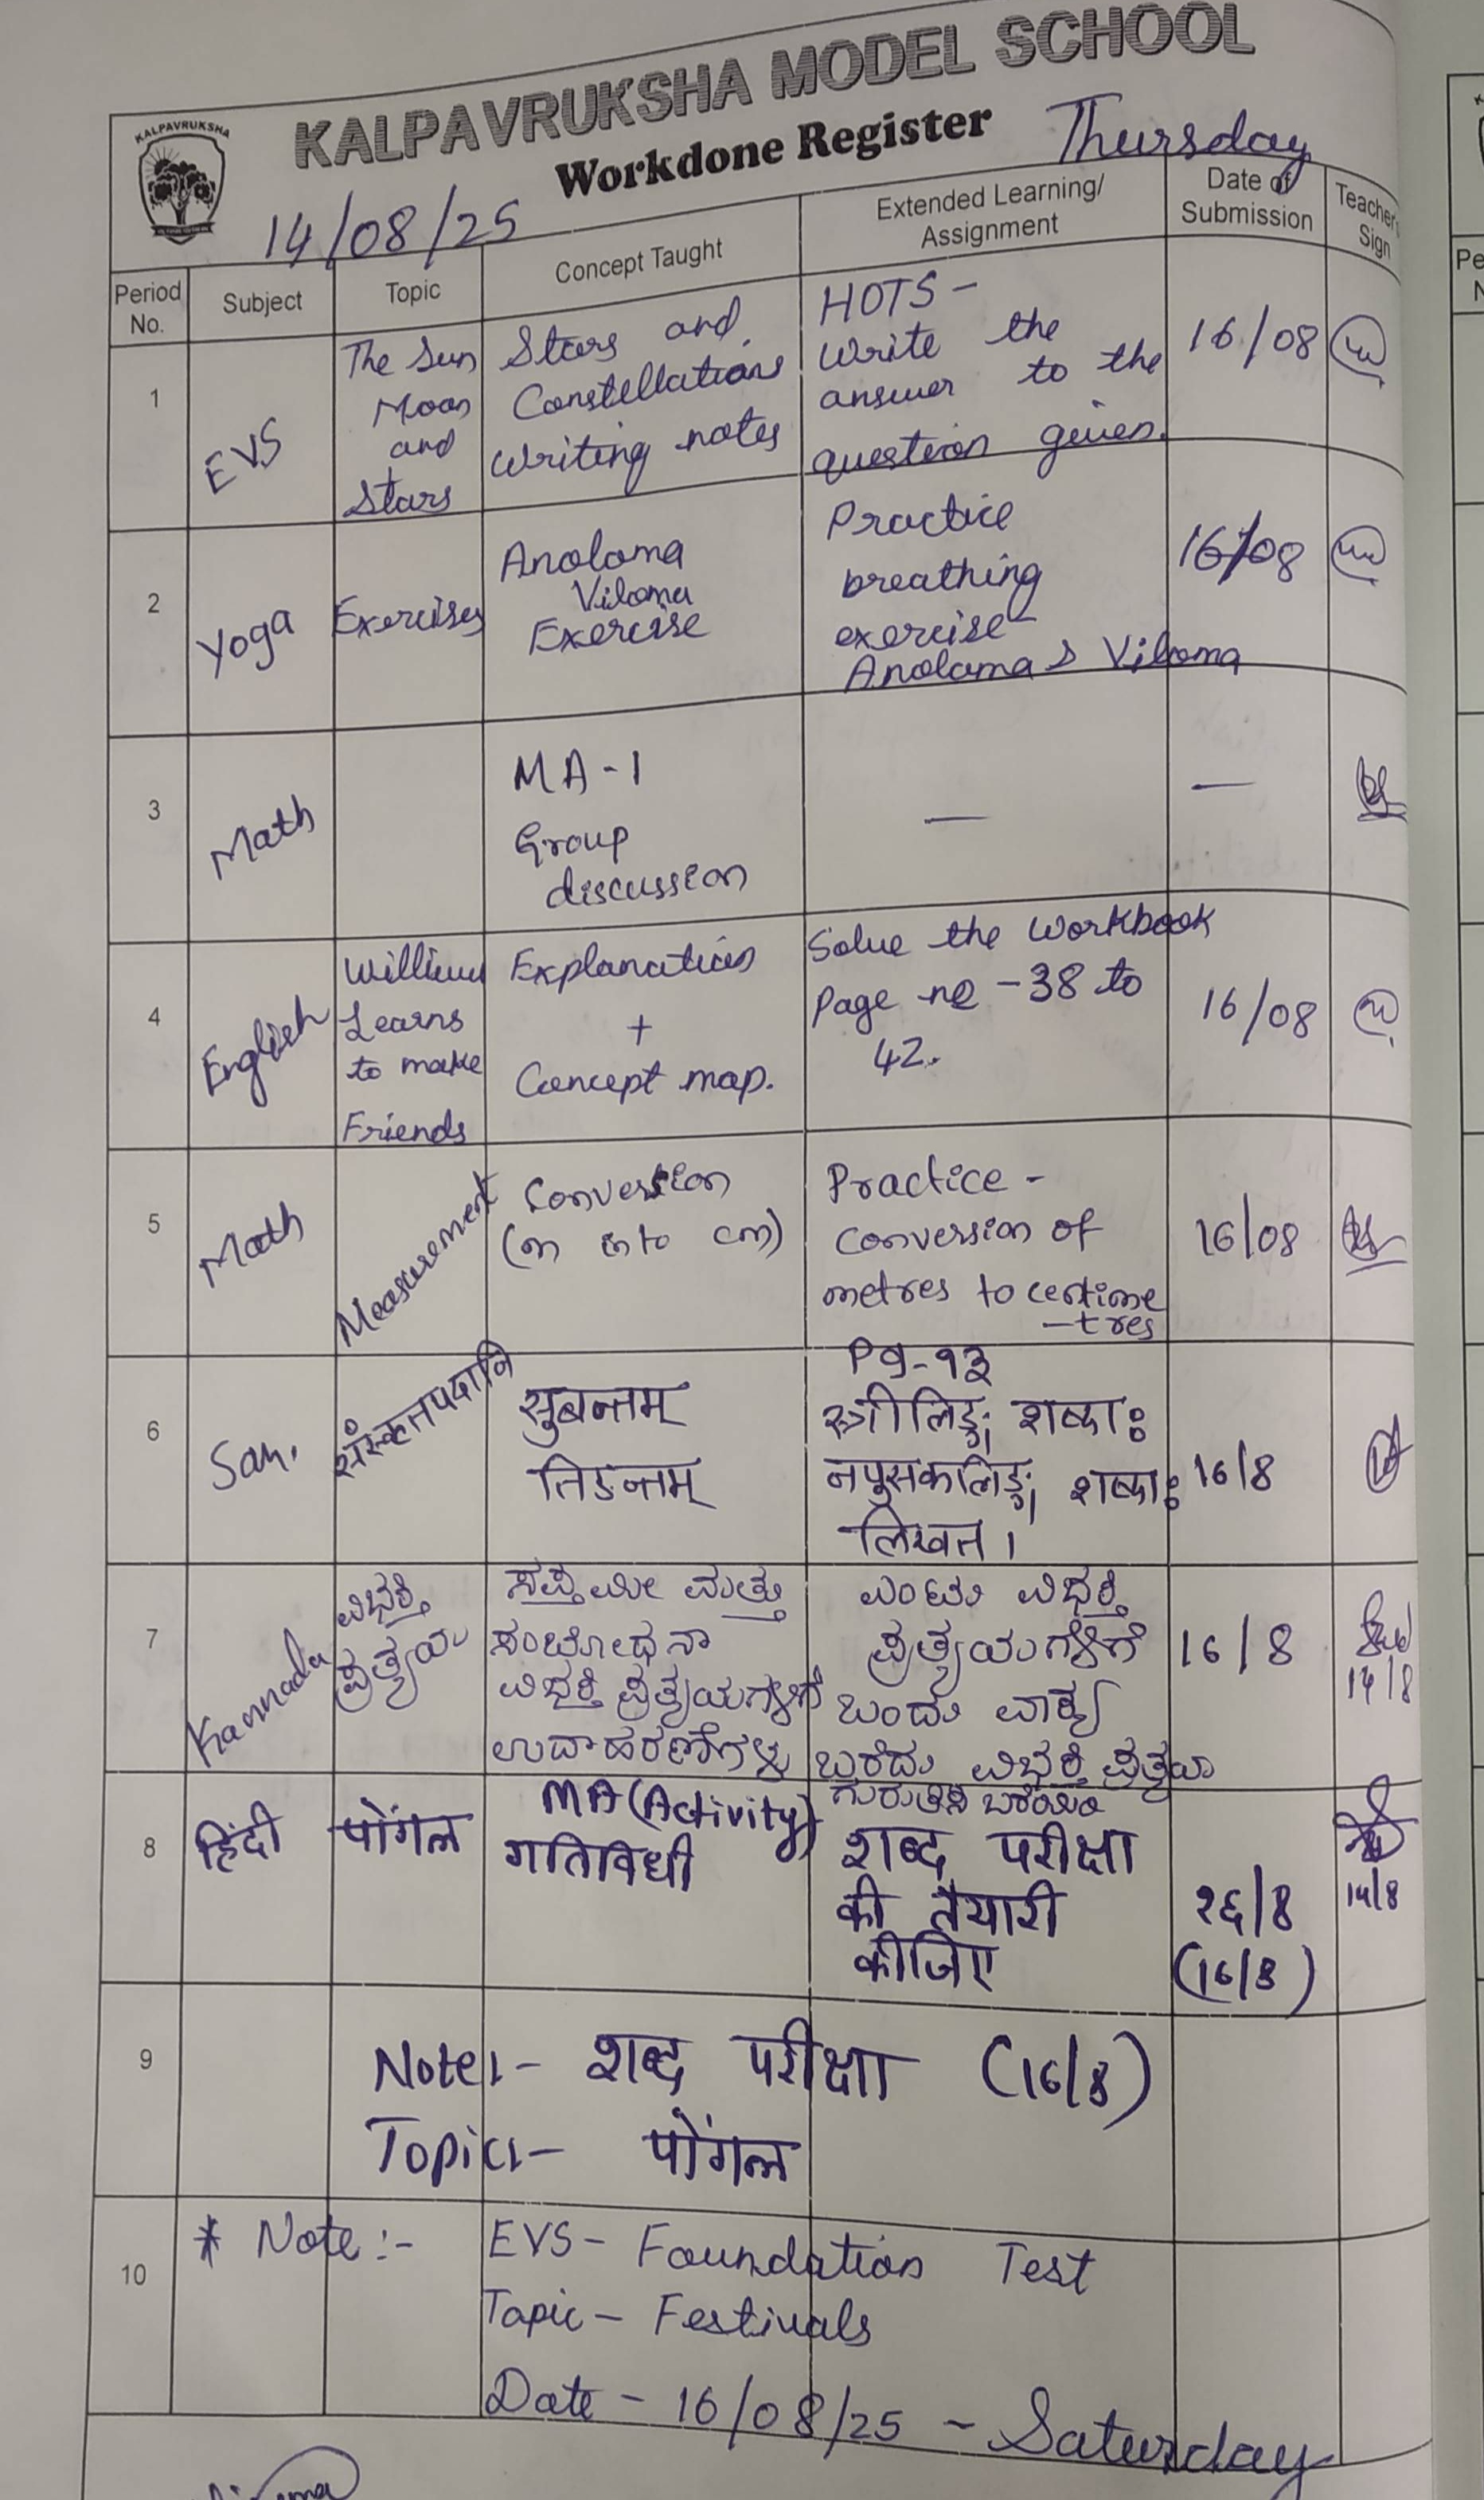 KALPAVRUKSHA MODEL SCHOOL
KALPAVRUKSHA
Workdone Register
Thursday
14/08/25
Period No.
Subject
Topic
Concept Taught
Extended Learning/
Assignment
Date of
Submission
Teacher's
Sign
1
EVS
The Sun
Moon
and
Stars
Stars and
Constellations
Writing notes
HOTS -
Write the
answer to the
question given.
16/08
2
Yoga
Exercises
Anoloma
Viloma
Exercise
Practice
breathing
exercise
Anoloma & Viloma
16/08
3
Math
MA-1
Group
discussion
—
—
4
English
William
Learns
to make
Friends
Explanation
+
Concept map.
Solve the Workbook
Page no - 38 to
42.
16/08
5
Math
Measurement
Conversion
(m into cm)
Practice -
conversion of
metres to centime
-tres
16/08
6
San.
संस्कृतपदानि
सुबन्तम्
तिङन्तम्
Pg-१३
स्त्रीलिङ्ग शब्दाः
नपुसकलिङ्ग शब्दाः
लिखत।
16/8
7
Kannada
ವಿಭಕ್ತಿ
ಪ್ರತ್ಯಯ
ಸಪ್ತಮೀ ಮತ್ತು
ಸಂಬೋಧನಾ
ವಿಭಕ್ತಿ ಪ್ರತ್ಯಯಗಳಿಗೆ
ಉದಾಹರಣೆಗಳು
ಎಂಟು ವಿಭಕ್ತಿ
ಪ್ರತ್ಯಯಗಳಿಗೆ
ಒಂದು ವಾಕ್ಯ
ಬರೆದು ವಿಭಕ್ತಿ ಪ್ರತ್ಯಯ
ಗುರುತಿಸಿ ಬರೆಯಿರಿ
16/8
14/8
8
हिंदी
पोंगल
MA (Activity)
गतिविधी
शब्द परीक्षा
की तैयारी
कीजिए
१६/8
(16/8)
14/8
9
Note:- शब्द परीक्षा (16/8)
Topic:- पोंगल
10
* Note :-
EVS - Foundation Test
Topic - Festivals
Date - 16/08/25 - Saturday